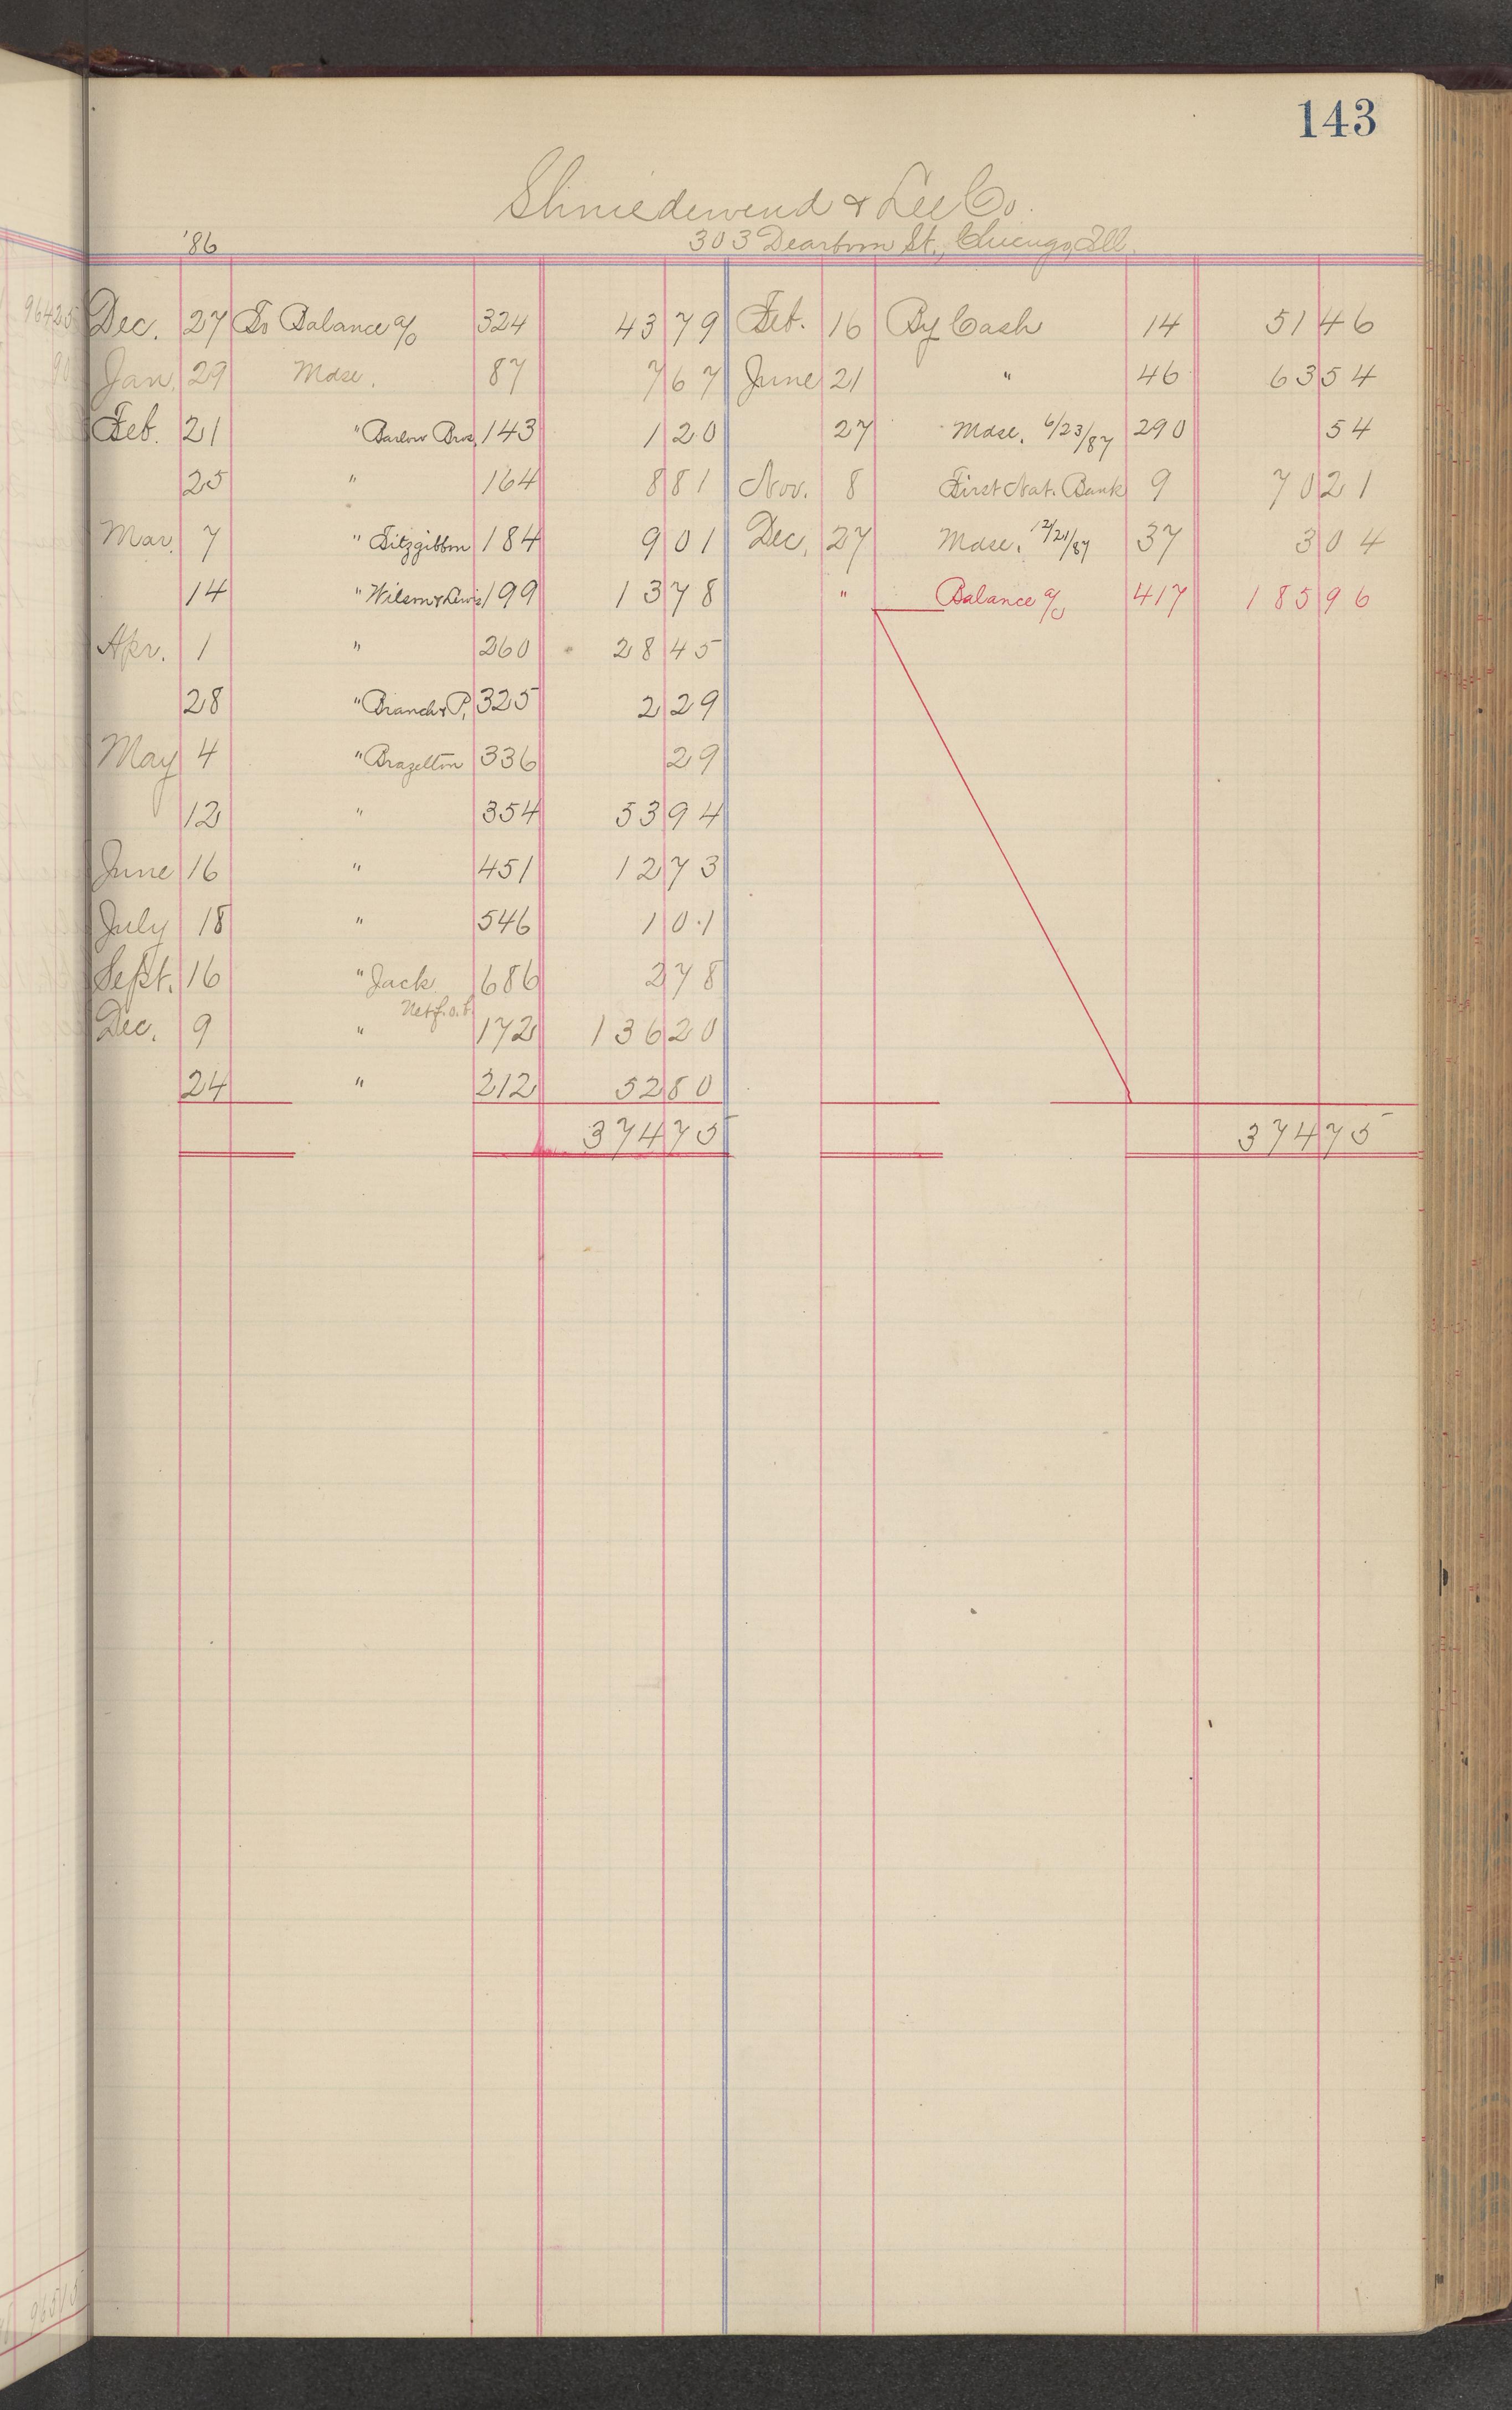 143
Shniedewend & Lee Co.
'86 303 Dearborn St., Chicago, Ill.
Dec. 27 To Balance a/c 324 43 79 Feb. 16 By Cash 14 51 46
Jan. 29 Mdse. 87 7 67 June 21 " 46 63 54
Feb. 21 " Barlow Bros. 143 1 20 27 Mdse. 6/23/87 290 54
25 " 164 8 81 Nov. 8 First Nat. Bank 9 70 21
Mar. 7 " Fitzgibbon 184 9 01 Dec. 27 Mdse. 12/21/87 37 3 04
14 " Wilson & Lewis 199 13 78 " Balance a/c 417 185 96
Apr. 1 " 260 28 45
28 " Branch & P. 325 2 29
May 4 " Brazelton 336 29
12 " 354 53 94
June 16 " 451 12 73
July 18 " 546 1 01
Sept. 16 " Jack 686 2 78
Net f.o.b.
Dec. 9 " 172 136 20
24 " 212 52 80
374 75 374 75